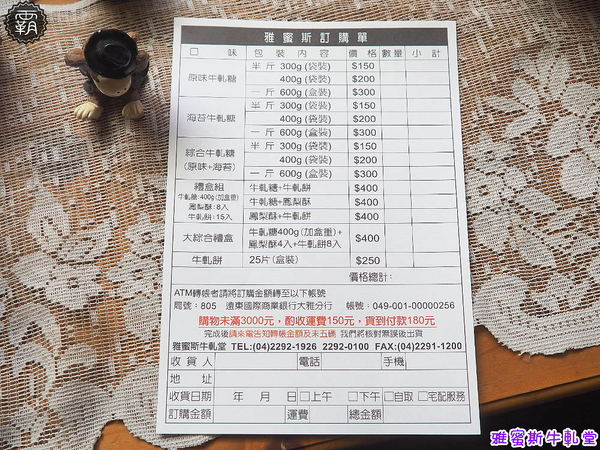 霸
雅蜜斯訂購單
口味 包裝內容 價格 數量 小計
原味牛軋糖 半斤 300g (袋裝) $150
400g (袋裝) $200
一斤 600g (盒裝) $300
海苔牛軋糖 半斤 300g (袋裝) $150
400g (袋裝) $200
一斤 600g (盒裝) $300
綜合牛軋糖 (原味+海苔) 半斤 300g (袋裝) $150
400g (袋裝) $200
一斤 600g (盒裝) $300
禮盒組 牛軋糖+牛軋餅 $400
牛軋糖:400g(加盒重) 牛軋糖+鳳梨酥 $400
鳳梨酥:8入
牛軋餅:15入 鳳梨酥+牛軋餅 $400
大綜合禮盒 牛軋糖400g(加盒重)+ 鳳梨酥4入+牛軋餅8入 $400
牛軋餅 25片(盒裝) $250
價格總計:
ATM轉帳者請將訂購金額轉至以下帳號
局號:805 遠東國際商業銀行大雅分行 帳號:049-001-00000256
購物未滿3000元,酌收運費150元,貨到付款180元
完成後請來電告知轉帳金額及末五碼 我們將核對無誤後出貨
雅蜜斯牛軋堂 TEL:(04)2292-1926 2292-0100 FAX:(04)2291-1200
收貨人 電話 手機
地址
收貨日期 年 月 日 □上午 □下午 □自取 □宅配服務
訂購金額 運費 總金額
雅蜜斯牛軋堂